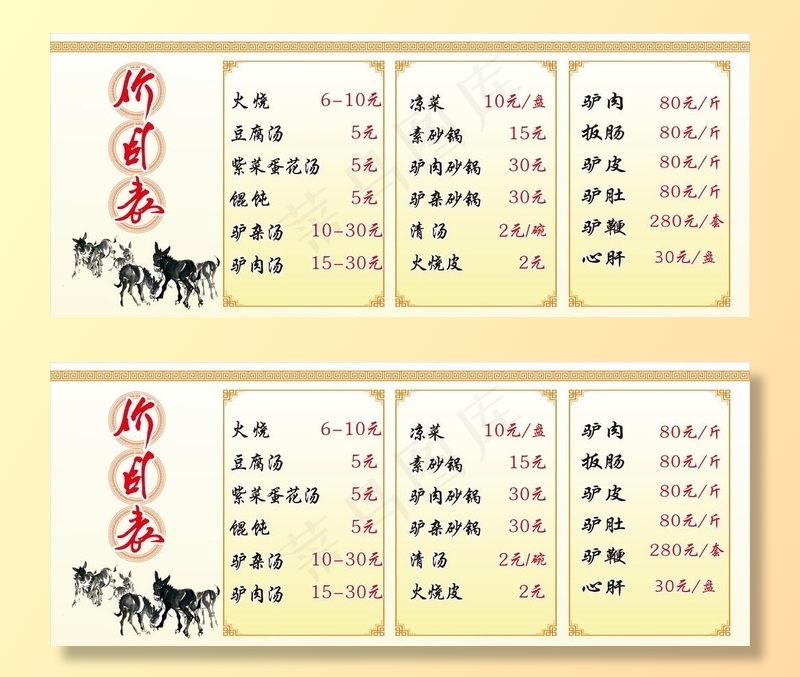 价目表
火烧 6-10元
豆腐汤 5元
紫菜蛋花汤 5元
馄饨 5元
驴杂汤 10-30元
驴肉汤 15-30元
凉菜 10元/盘
素砂锅 15元
驴肉砂锅 30元
驴杂砂锅 30元
清汤 2元/碗
火烧皮 2元
驴肉 80元/斤
扳肠 80元/斤
驴皮 80元/斤
驴肚 80元/斤
驴鞭 280元/套
心肝 30元/盘
菜鸟图库
价目表
火烧 6-10元
豆腐汤 5元
紫菜蛋花汤 5元
馄饨 5元
驴杂汤 10-30元
驴肉汤 15-30元
凉菜 10元/盘
素砂锅 15元
驴肉砂锅 30元
驴杂砂锅 30元
清汤 2元/碗
火烧皮 2元
驴肉 80元/斤
扳肠 80元/斤
驴皮 80元/斤
驴肚 80元/斤
驴鞭 280元/套
心肝 30元/盘
菜鸟图库